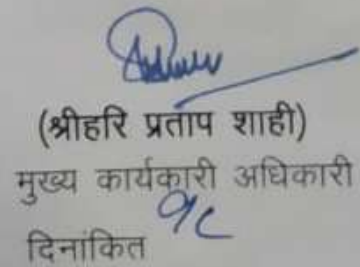 (श्रीहरि प्रताप शाही)
मुख्य कार्यकारी अधिकारी
दिनांकित